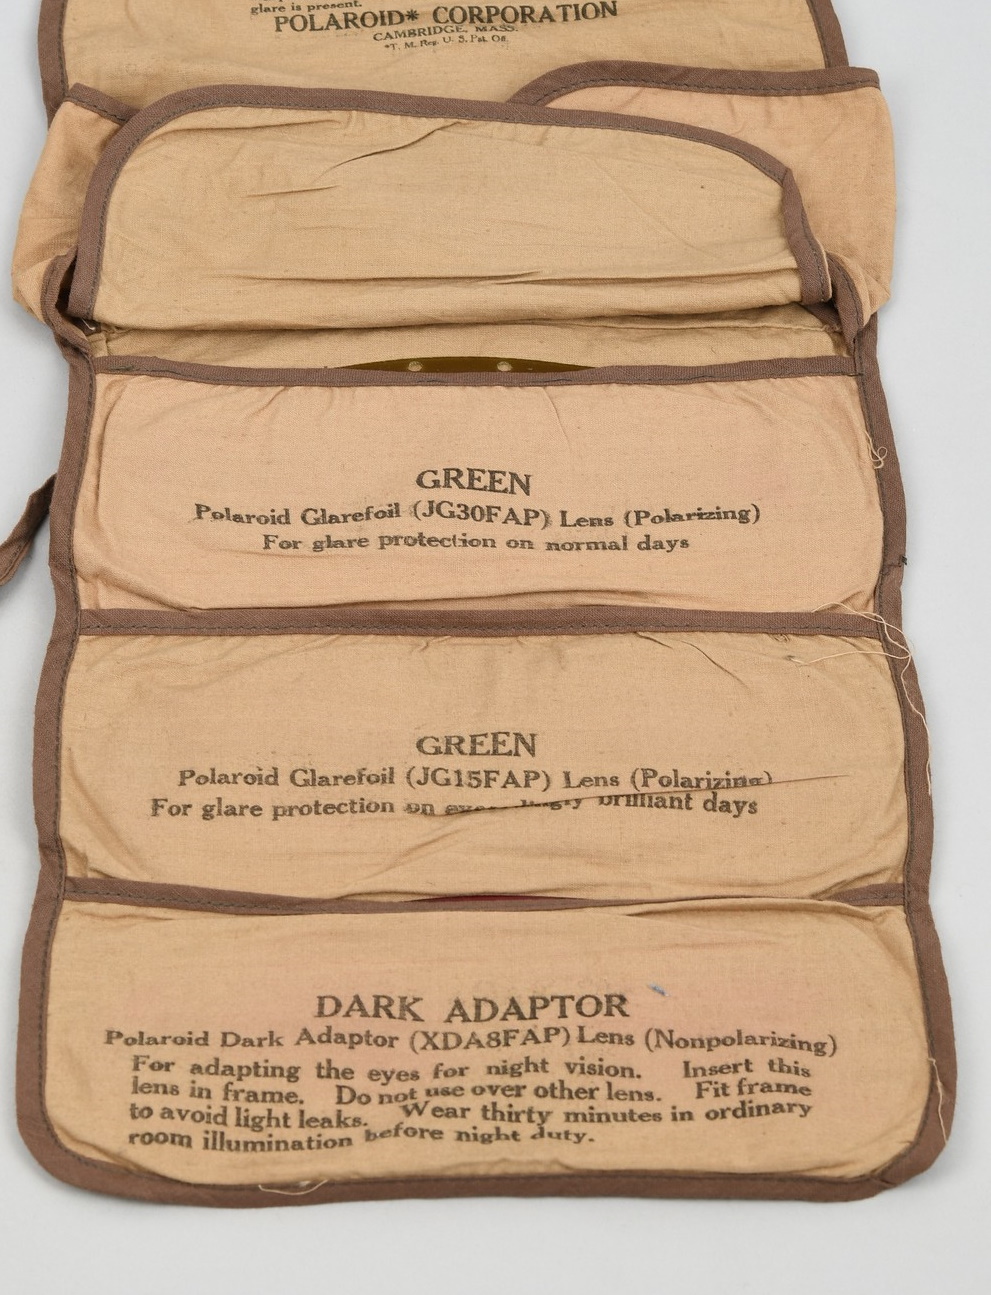 glare is present.
POLAROID* CORPORATION
CAMBRIDGE, MASS.
*T. M. Reg. U. S. Pat. Off.
GREEN
Polaroid Glarefoil (JG30FAP) Lens (Polarizing)
For glare protection on normal days
GREEN
Polaroid Glarefoil (JG15FAP) Lens (Polarizing)
For glare protection on brilliant days
DARK ADAPTOR
Polaroid Dark Adaptor (XDA8FAP) Lens (Nonpolarizing)
For adapting the eyes for night vision. Insert this
lens in frame. Do not use over other lens. Fit frame
to avoid light leaks. Wear thirty minutes in ordinary
room illumination before night duty.